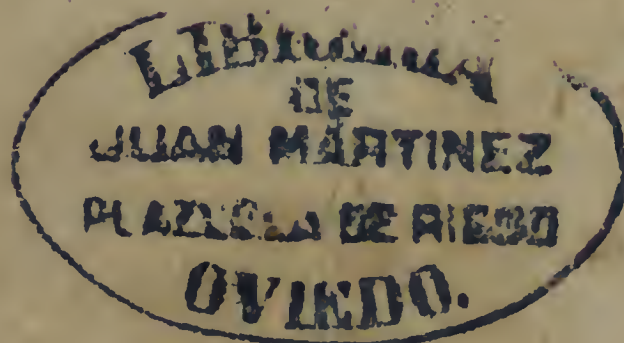 LIBRERIA
DE
JUAN MARTINEZ
PLAZUELA DE RIEGO
OVIEDO.